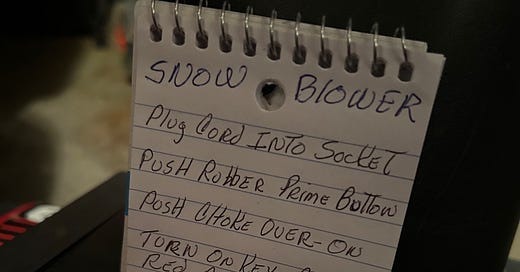 SNOW BLOWER
Plug CORD INTO SOCKET
PUSH RUBBER PRIME BUTTON
PUSH CHOKE OVER-ON
TURN ON KEY
RED